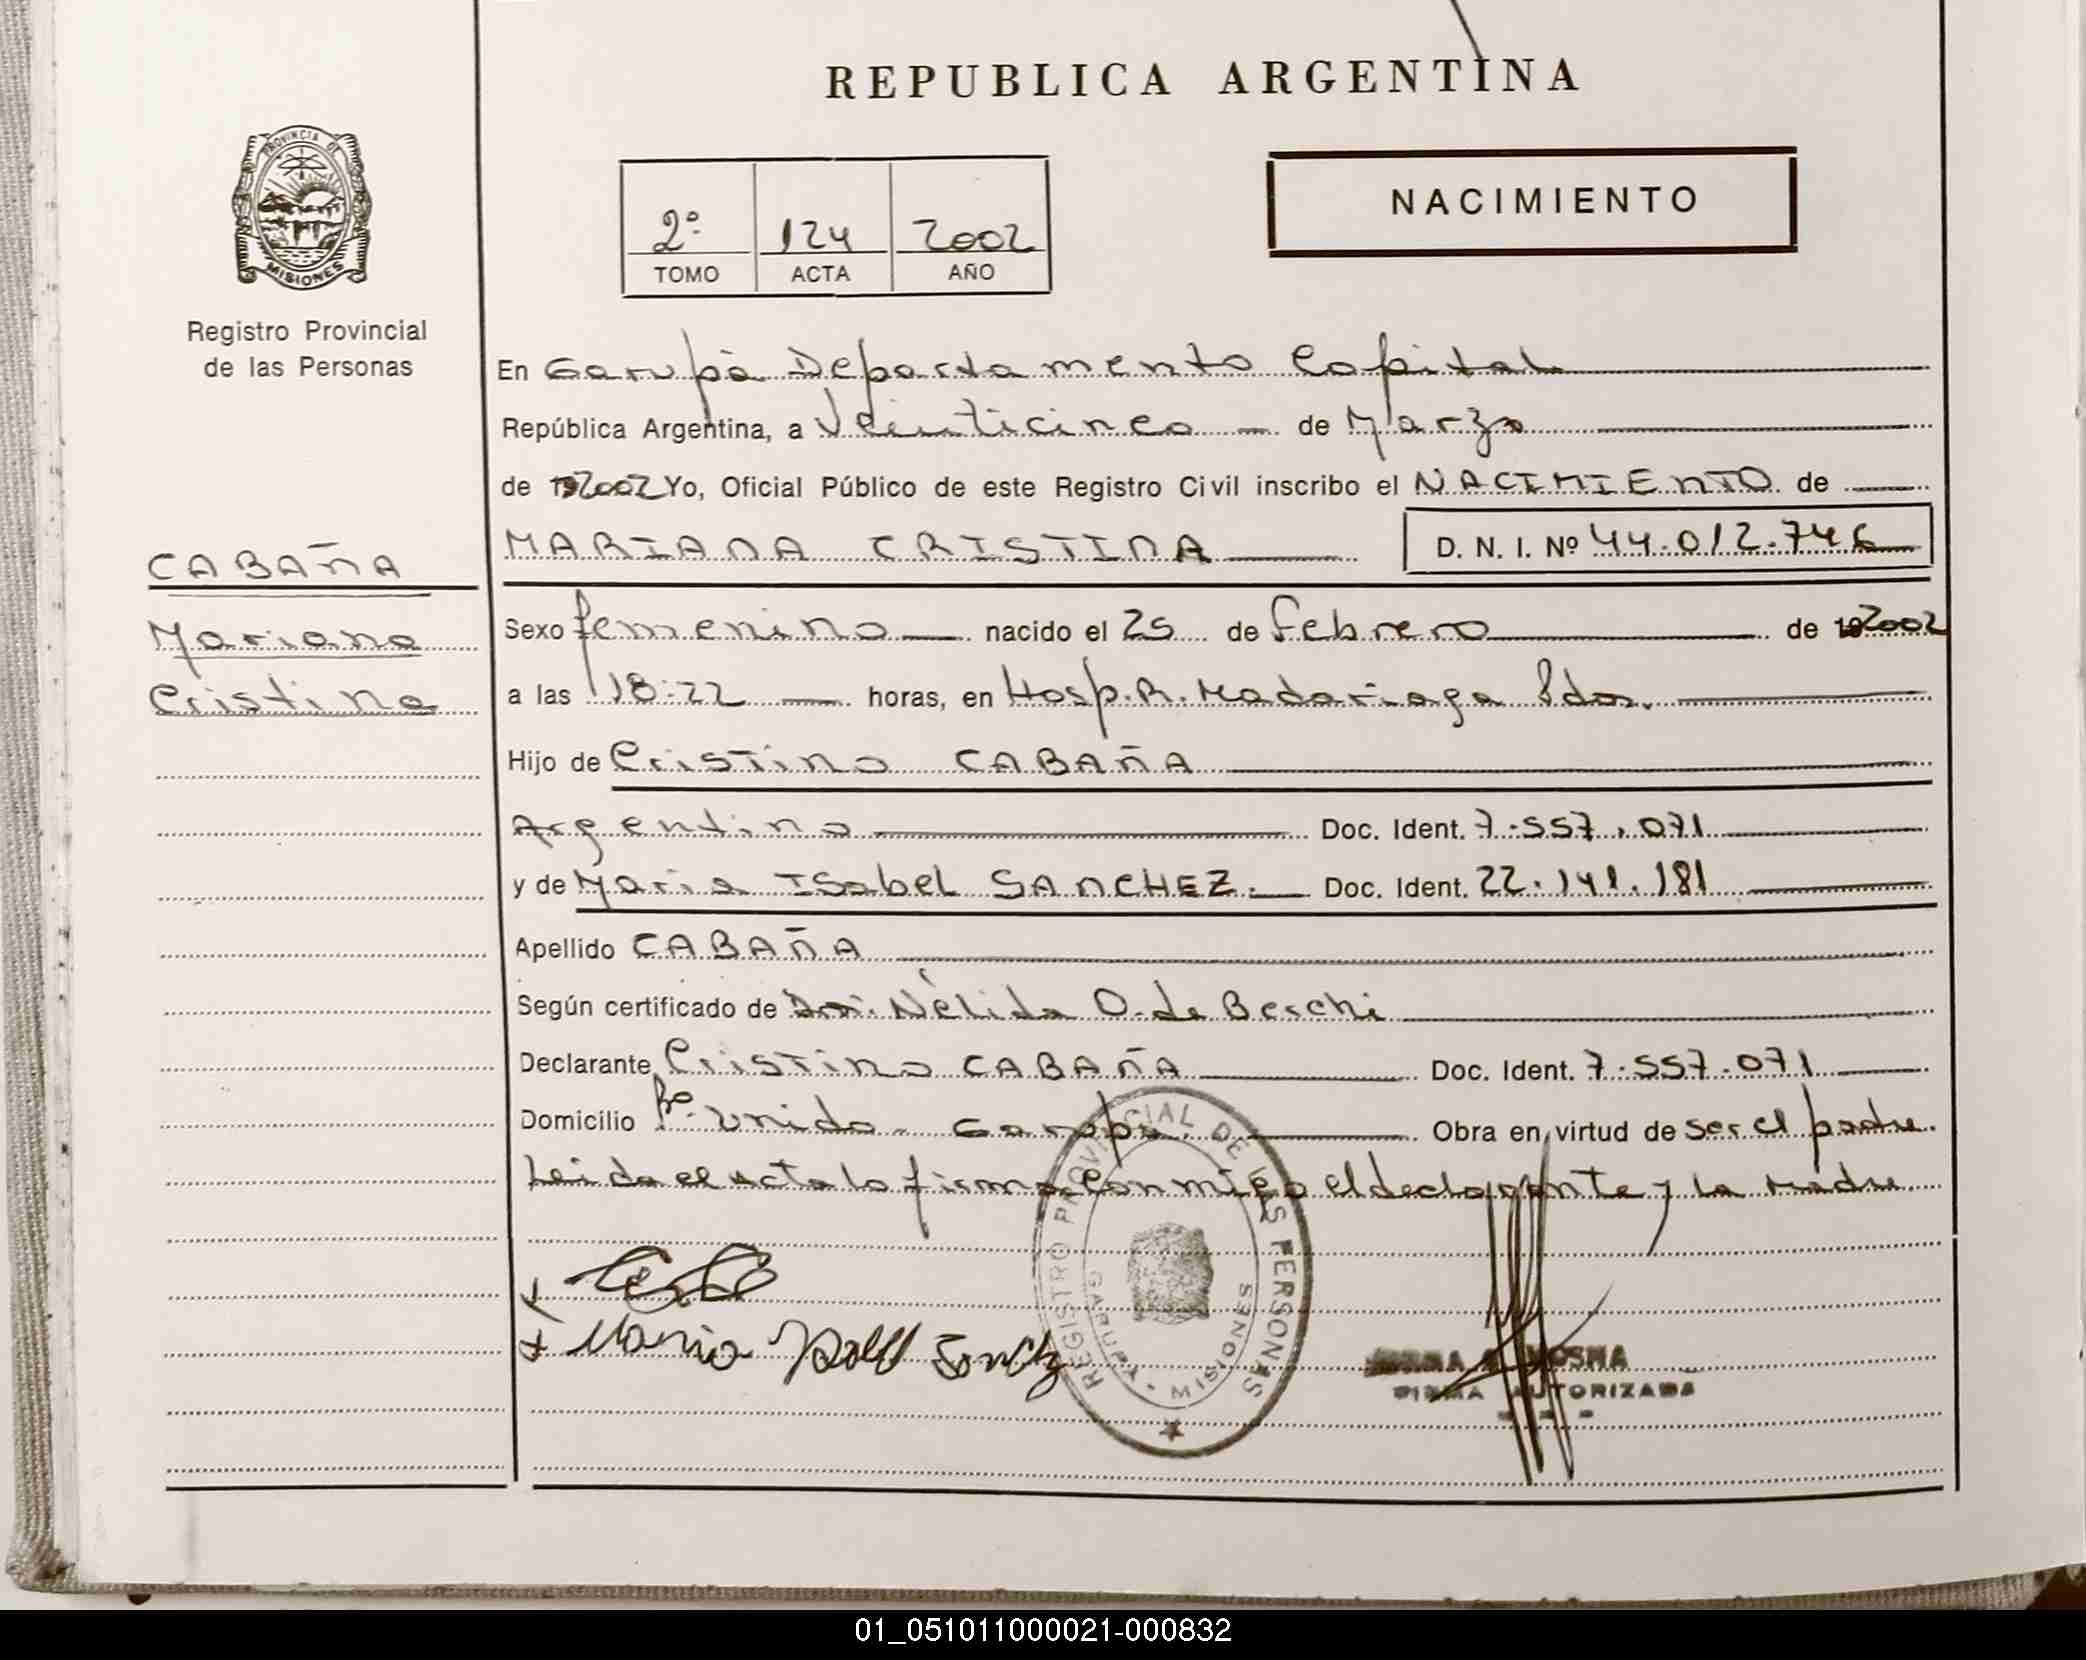 REPUBLICA ARGENTINA
PROVINCIA DE
MISIONES
Registro Provincial
de las Personas
2º 124 2002
TOMO ACTA AÑO
NACIMIENTO
En Garupá Departamento Capital
República Argentina, a Veinticinco de Marzo
de 2002 Yo, Oficial Público de este Registro Civil inscribo el NACIMIENTO de
MARIANA CRISTINA D. N. I. Nº 44.012.746
CABAÑA
Mariana
Cristina
Sexo femenino nacido el 25 de Febrero de 2002
a las 18:22 horas, en Hosp. R. Madariaga Pdas.
Hijo de Cristino CABAÑA
Argentino Doc. Ident. 7.557.071
y de Maria ISabel SANCHEZ. Doc. Ident. 22.141.181
Apellido CABAÑA
Según certificado de Nélida O. de Beschi
Declarante Cristino CABAÑA Doc. Ident. 7.557.071
Domicilio Bº Unido - Garupá. Obra en virtud de ser el padre.
Leida el acta la firma conmigo el declarante y la madre
Maria Isabel Sanchez
REGISTRO PROVINCIAL DE LAS PERSONAS
GARUPA - MISIONES
FIRMA AUTORIZADA
01_051011000021-000832